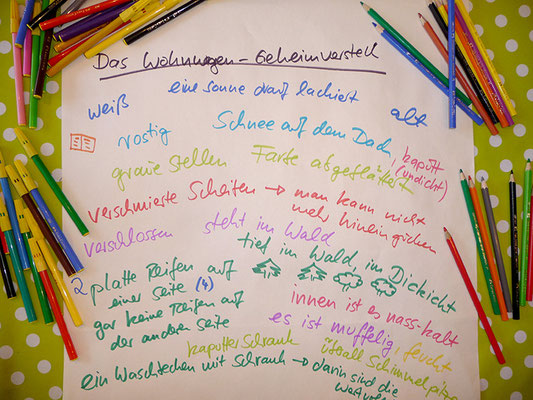 Das Wohnwagen-Geheimversteck
weiß eine Sonne drauf lackiert alt
rostig Schnee auf dem Dach, kaputt
(undicht)
graue Stellen Farbe abgeblättert
verschmierte Scheiben → man kann nicht
mehr hineingucken
verschlossen steht im Wald
tief im Wald, im Dickicht
2 platte Reifen auf
einer Seite (4)
gar keine Reifen auf
der anderen Seite
innen ist es nass-kalt
es ist muffelig, feucht
kaputter Schrank überall Schimmelpilze
ein Waschbecken mit Schrank → darin sind die